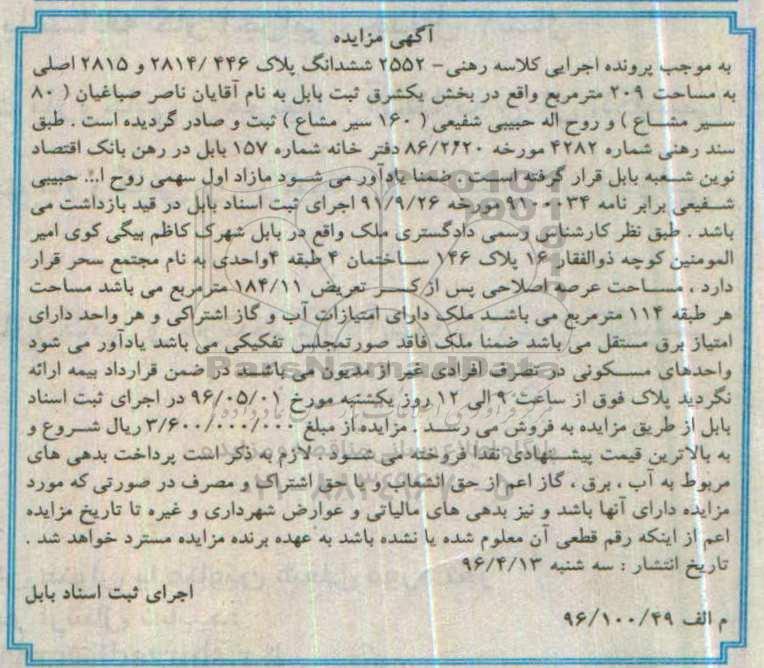 آگهی مزایده
به موجب پرونده اجرایی کلاسه رهنی- ۲۵۵۲ ششدانگ پلاک ۴۴۶ /۲۸۱۴ و ۲۸۱۵ اصلی
به مساحت ۲۰۹ مترمربع واقع در بخش یکشرق ثبت بابل به نام آقایان ناصر صباغیان ( ۸۰
سیر مشاع ) و روح اله حبیبی شفیعی ( ۱۶۰ سیر مشاع ) ثبت و صادر گردیده است . طبق
سند رهنی شماره ۴۲۸۲ مورخه ۸۶/۲/۲۰ دفتر خانه شماره ۱۵۷ بابل در رهن بانک اقتصاد
نوین شعبه بابل قرار گرفته است . ضمنا یادآور می شود مازاد اول سهمی روح ا... حبیبی
شفیعی برابر نامه ۹۱۰۰۰۳۴ مورخه ۹۱/۹/۲۶ اجرای ثبت اسناد بابل در قید بازداشت می
باشد . طبق نظر کارشناس رسمی دادگستری ملک واقع در بابل شهرک کاظم بیگی کوی امیر
المومنین کوچه ذوالفقار ۱۶ پلاک ۱۴۶ ساختمان ۴ طبقه ۴واحدی به نام مجتمع سحر قرار
دارد ، مساحت عرصه اصلاحی پس از کسر تعریض ۱۸۴/۱۱ مترمربع می باشد مساحت
هر طبقه ۱۱۴ مترمربع می باشد ملک دارای امتیازات آب و گاز اشتراکی و هر واحد دارای
امتیاز برق مستقل می باشد ضمنا ملک فاقد صورتمجلس تفکیکی می باشد یادآور می شود
واحدهای مسکونی در تصرف افرادی غیر از مدیون می باشد در ضمن قرارداد بیمه ارائه
نگردید پلاک فوق از ساعت ۹ الی ۱۲ روز یکشنبه مورخ ۹۶/۰۵/۰۱ در اجرای ثبت اسناد
بابل از طریق مزایده به فروش می رسد . مزایده از مبلغ ۳/۶۰۰/۰۰۰/۰۰۰ ریال شروع و
به بالاترین قیمت پیشنهادی نقدا فروخته می شود ، لازم به ذکر است پرداخت بدهی های
مربوط به آب ، برق ، گاز اعم از حق انشعاب و یا حق اشتراک و مصرف در صورتی که مورد
مزایده دارای آنها باشد و نیز بدهی های مالیاتی و عوارض شهرداری و غیره تا تاریخ مزایده
اعم از اینکه رقم قطعی آن معلوم شده یا نشده باشد به عهده برنده مزایده مسترد خواهد شد .
تاریخ انتشار : سه شنبه ۹۶/۴/۱۳
اجرای ثبت اسناد بابل
م الف ۹۶/۱۰۰/۴۹
ParsNamadData